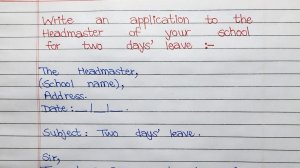 Write an application to the
Headmaster of your school
for two days' leave :-
The Headmaster,
(School name),
Address.
Date: __/__/__.
Subject: Two days' leave.
Sir,